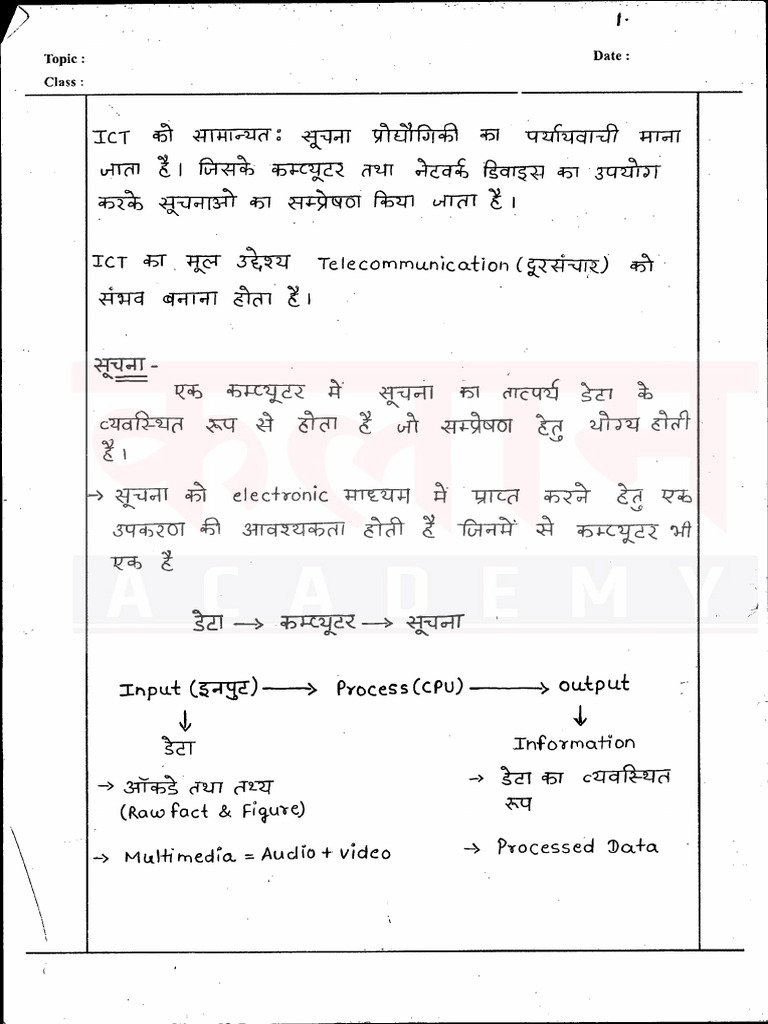 1.
Topic :
Date :
Class :
ICT को सामान्यत: सूचना प्रोद्यौगिकी का पर्यायवाची माना
जाता है। जिसके कम्प्यूटर तथा नेटवर्क डिवाइस का उपयोग
करके सूचनाओ का सम्प्रेषण किया जाता है।
ICT का मूल उद्देश्य Telecommunication (दूरसंचार) को
संभव बनाना होता है।
सूचना -
एक कम्प्यूटर में सूचना का तात्पर्य डेटा के
व्यवस्थित रूप से होता है जो सम्प्रेषण हेतु योग्य होती
है।
→ सूचना को electronic माध्यम में प्राप्त करने हेतु एक
उपकरण की आवश्यकता होती है जिनमें से कम्प्यूटर भी
एक है
कलाम
ACADEMY
डेटा → कम्प्यूटर → सूचना
Input (इनपुट) → Process (CPU) → output
↓ ↓
डेटा Information
→ ऑकडे तथा तथ्य → डेटा का व्यवस्थित
(Raw fact & Figure) रूप
→ Multimedia = Audio + video → Processed Data